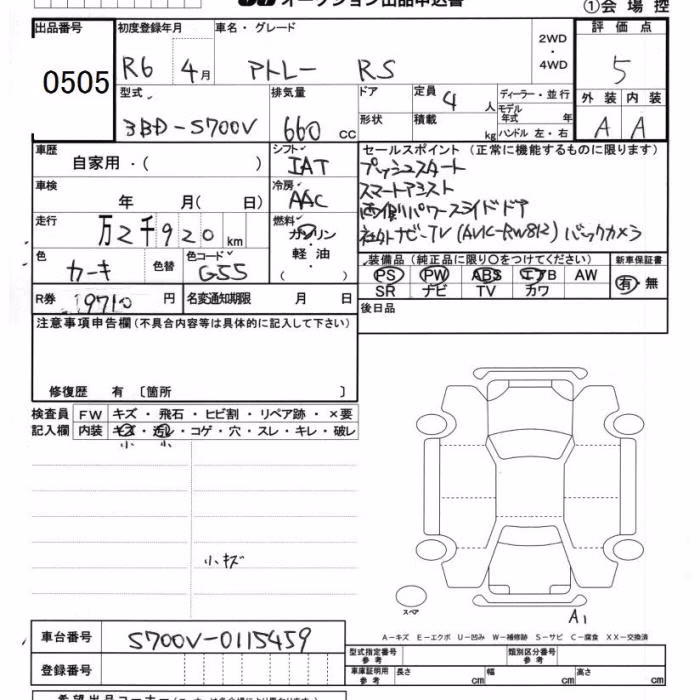 オークション出品申込書
①会場控
出品番号 0505
初度登録年月 R6 4月
車名・グレード アトレー RS
2WD・4WD
評価点 5
型式 3BD-S700V
排気量 660 cc
ドア
形状
定員 4 人
積載 kg
ディーラー・並行
モデル年式 年
ハンドル 左・右
外装 A
内装 A
車歴 自家用・( )
シフト IAT
車検 年 月( 日)
冷房 AAC
走行 万2千920km
燃料 ガソリン・軽油・( )
色 カーキ 色替
色コード G55
R券 9710 円
名変通知期限 月 日
セールスポイント (正常に機能するものに限ります)
プッシュスタート
スマートアシスト
両側パワースライドドア
社外ナビ-TV (AVIC-RW812) バックカメラ
装備品(純正品に限り○をつけてください)
新車保証書
PS PW ABS エアB AW
有・無
SR ナビ TV カワ
後日品
注意事項申告欄(不具合内容等は具体的に記入して下さい)
修復歴 有 〔箇所 〕
検査員記入欄
FW キズ・飛石・ヒビ割・リペア跡・×要
内装 キズ・汚レ・コゲ・穴・スレ・キレ・破レ
小 小
小キズ
スペア
A1
A-キズ E-エクボ U-凹み W-補修跡 S-サビ C-腐食 XX-交換済
車台番号 S700V-0115459
登録番号
型式指定番号 参考
類別区分番号 参考
車庫証明用 参考 長さ cm 幅 cm 高さ cm
希望出品コーナー